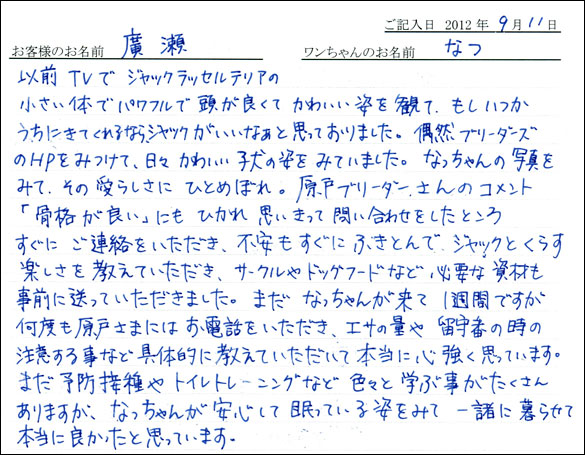 ご記入日 2012 年 9 月 11 日
お客様のお名前 廣瀬 ワンちゃんのお名前 なつ
以前 TVで ジャックラッセルテリアの
小さい体でパワフルで 頭が良くて かわいい姿を観て、もしいつか
うちにきてくれるならジャックがいいなぁと思っておりました。偶然ブリーダーズ
のHPをみつけて、日々かわいい子犬の姿をみていました。なっちゃんの写真を
みて、その愛らしさに ひとめぼれ。原戸ブリーダーさんのコメント
「骨格が良い」にも ひかれ 思いきって問い合わせをしたところ
すぐに ご連絡をいただき、不安もすぐにふきとんで、ジャックとくらす
楽しさを教えていただき、サークルやドッグフードなど 必要な資材も
事前に送っていただきました。まだ なっちゃんが来て 1週間ですが
何度も原戸さまには お電話をいただき、エサの量や 留守番の時の
注意する事など具体的に教えていただいて本当に心強く思っています。
まだ予防接種や トイレトレーニングなど 色々と 学ぶ事がたくさん
ありますが、なっちゃんが安心して 眠っている姿をみて 一諸に暮らせて
本当に良かったと思っています。